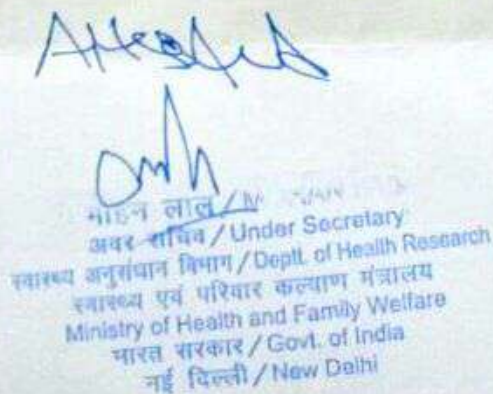 Attested
मोहन लाल / M
अवर सचिव / Under Secretary
स्वास्थ्य अनुसंधान विभाग / Deptt. of Health Research
स्वास्थ्य एवं परिवार कल्याण मंत्रालय
Ministry of Health and Family Welfare
भारत सरकार / Govt. of India
नई दिल्ली / New Delhi